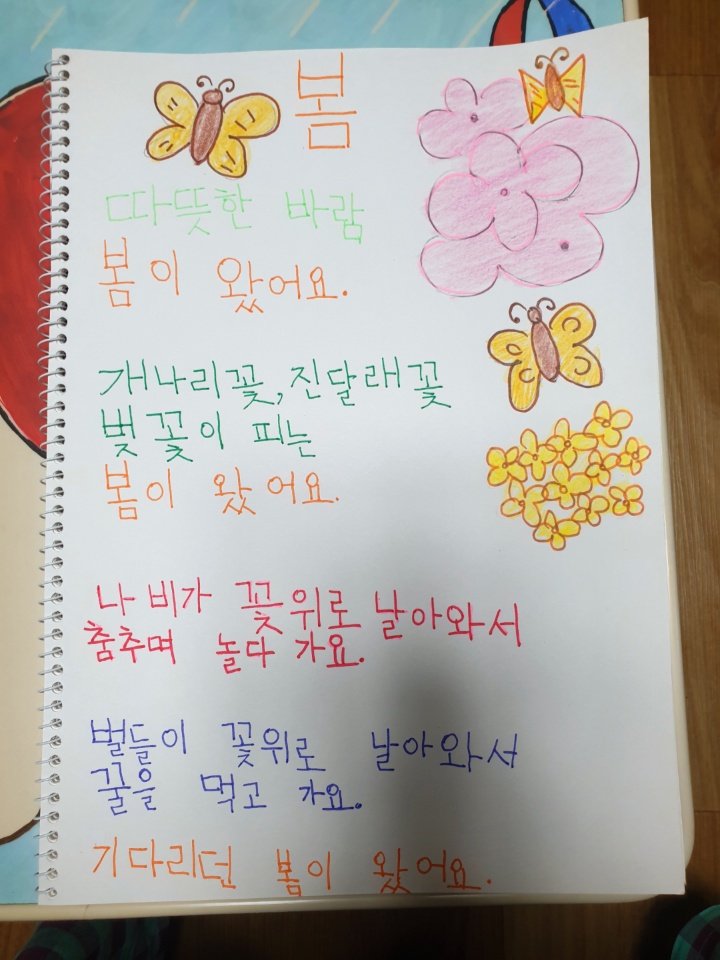 봄
따뜻한 바람
봄이 왔어요.
개나리꽃, 진달래꽃
벚꽃이 피는
봄이 왔어요.
나비가 꽃위로 날아와서
춤추며 놀다 가요.
벌들이 꽃위로 날아와서
꿀을 먹고 가요.
기다리던 봄이 왔어요.